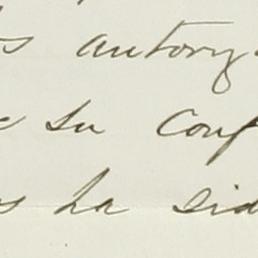 s autory
e su conf
s ha sid